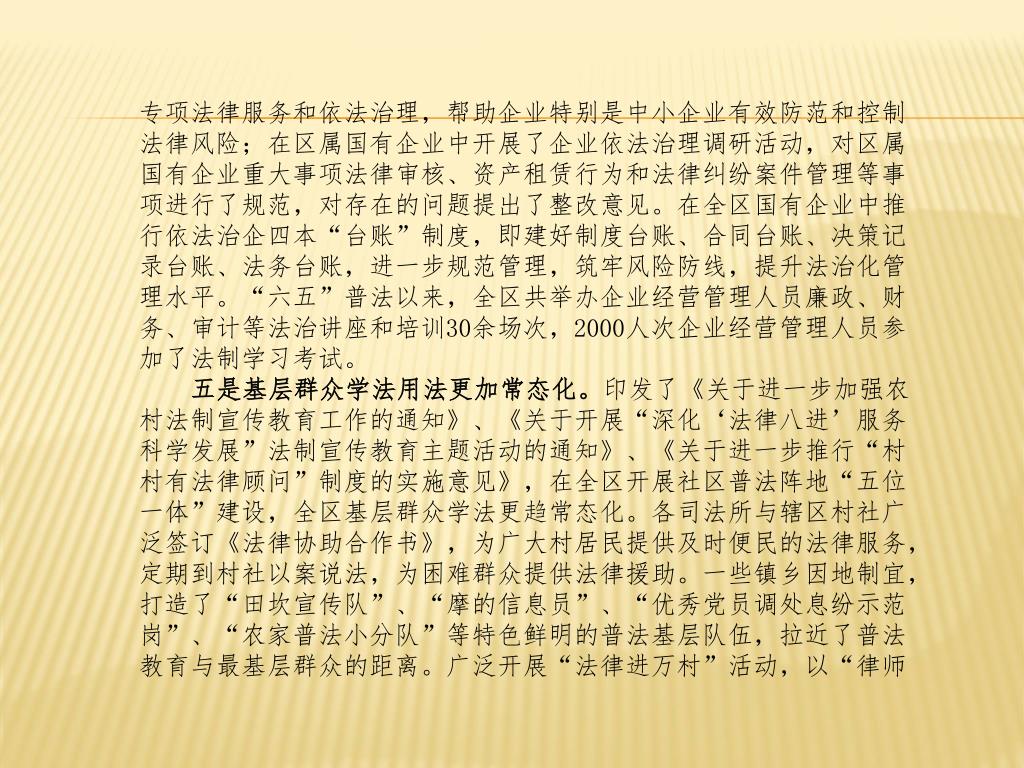 专项法律服务和依法治理，帮助企业特别是中小企业有效防范和控制
法律风险；在区属国有企业中开展了企业依法治理调研活动，对区属
国有企业重大事项法律审核、资产租赁行为和法律纠纷案件管理等事
项进行了规范，对存在的问题提出了整改意见。在全区国有企业中推
行依法治企四本“台账”制度，即建好制度台账、合同台账、决策记
录台账、法务台账，进一步规范管理，筑牢风险防线，提升法治化管
理水平。“六五”普法以来，全区共举办企业经营管理人员廉政、财
务、审计等法治讲座和培训30余场次，2000人次企业经营管理人员参
加了法制学习考试。
五是基层群众学法用法更加常态化。印发了《关于进一步加强农
村法制宣传教育工作的通知》、《关于开展“深化‘法律八进’服务
科学发展”法制宣传教育主题活动的通知》、《关于进一步推行“村
村有法律顾问”制度的实施意见》，在全区开展社区普法阵地“五位
一体”建设，全区基层群众学法更趋常态化。各司法所与辖区村社广
泛签订《法律协助合作书》，为广大村居民提供及时便民的法律服务，
定期到村社以案说法，为困难群众提供法律援助。一些镇乡因地制宜，
打造了“田坎宣传队”、“摩的信息员”、“优秀党员调处息纷示范
岗”、“农家普法小分队”等特色鲜明的普法基层队伍，拉近了普法
教育与最基层群众的距离。广泛开展“法律进万村”活动，以“律师